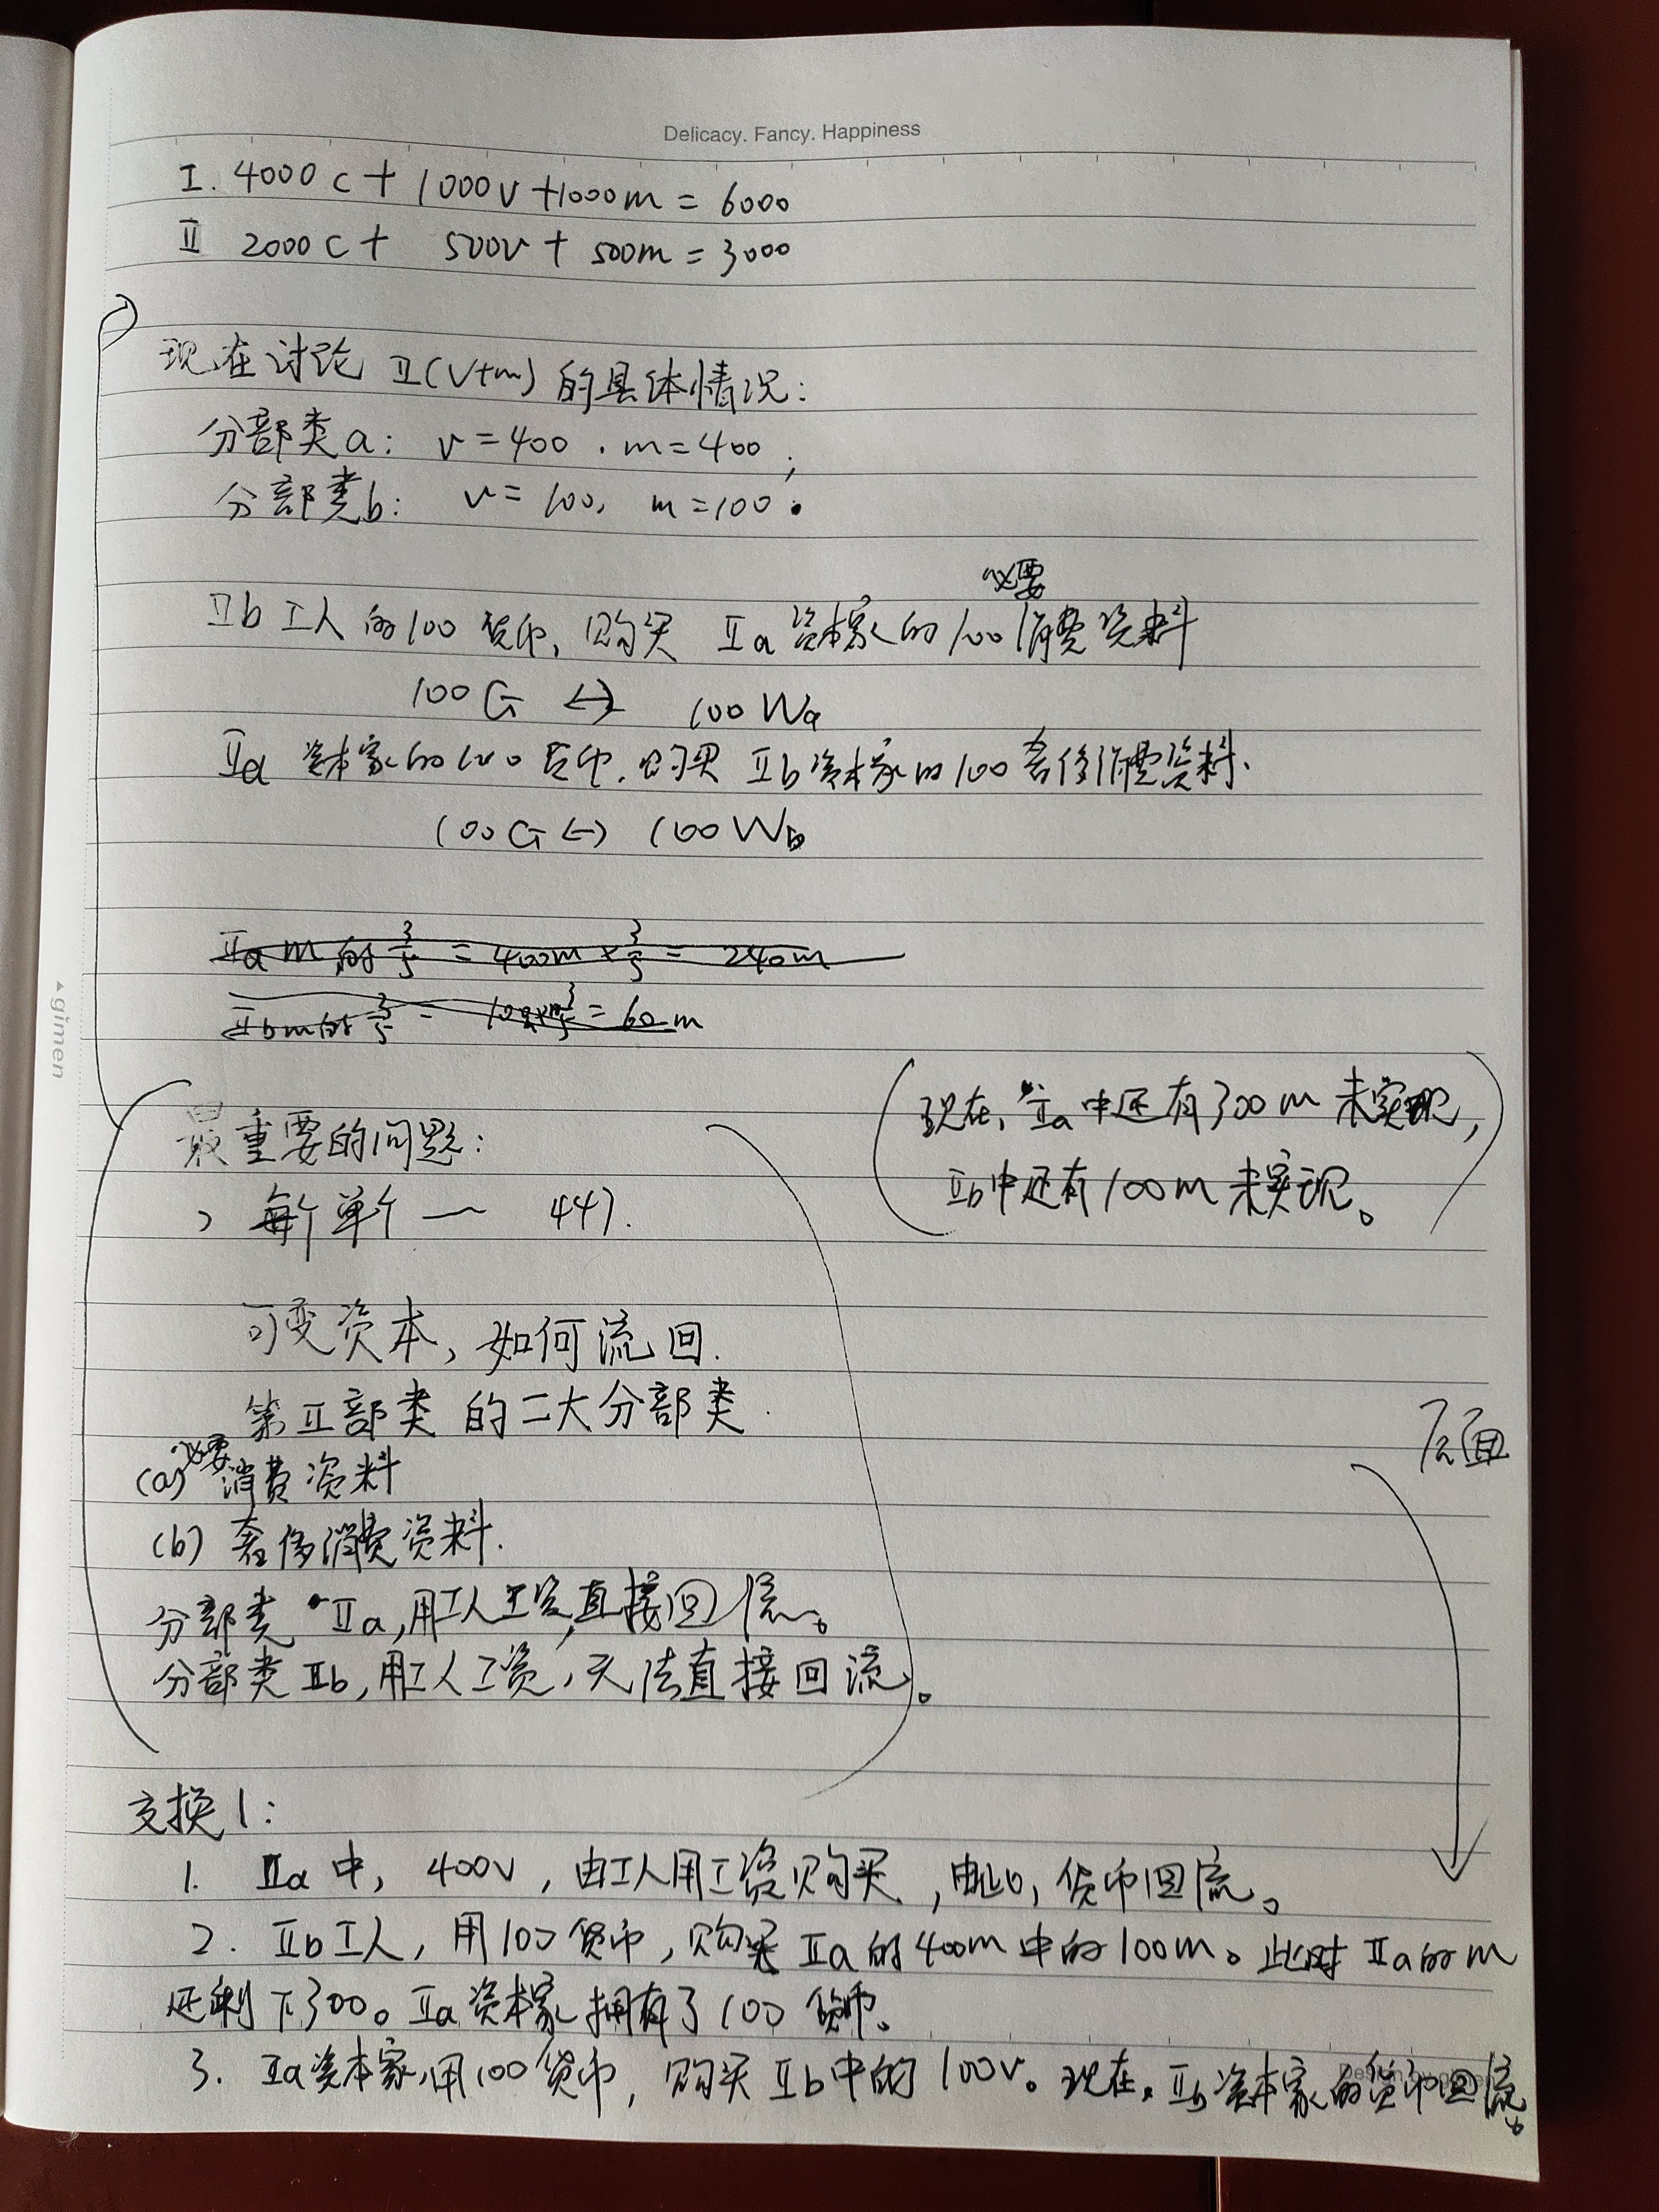 Delicacy. Fancy. Happiness
I. 4000c + 1000v + 1000m = 6000
II 2000c + 500v + 500m = 3000
现在讨论 II(v+m) 的具体情况:
分部类a: v=400. m=400;
分部类b: v=100, m=100.
必要
IIb 工人的100货币,购买 IIa 资本家的100消费资料
100G ↔ 100Wa
IIa 资本家的100货币.购买 IIb资本家的100奢侈消费资料.
100G ↔ 100Wb
IIa m的3/5 = 400m×3/5 = 240m
IIb m的3/5 = 100m×3/5 = 60m
(现在,IIa中还有300m未实现,
IIb中还有100m未实现。)
最重要的问题:
每个单个 — 447.
可变资本,如何流回.
第II部类的二大分部类.
(a)必要消费资料
(b)奢侈消费资料.
分部类IIa,用工人工资,直接回流。
分部类IIb,用工人工资,无法直接回流。
后面
交换1:
1. IIa中,400v,由工人用工资购买,由此,货币回流。
2. IIb工人,用100货币,购买IIa的400m中的100m。此时IIa的m
还剩下300。IIa资本家拥有了100货币。
3. IIa资本家用100货币,购买IIb中的100v。现在,IIb资本家的货币回流。
gimen